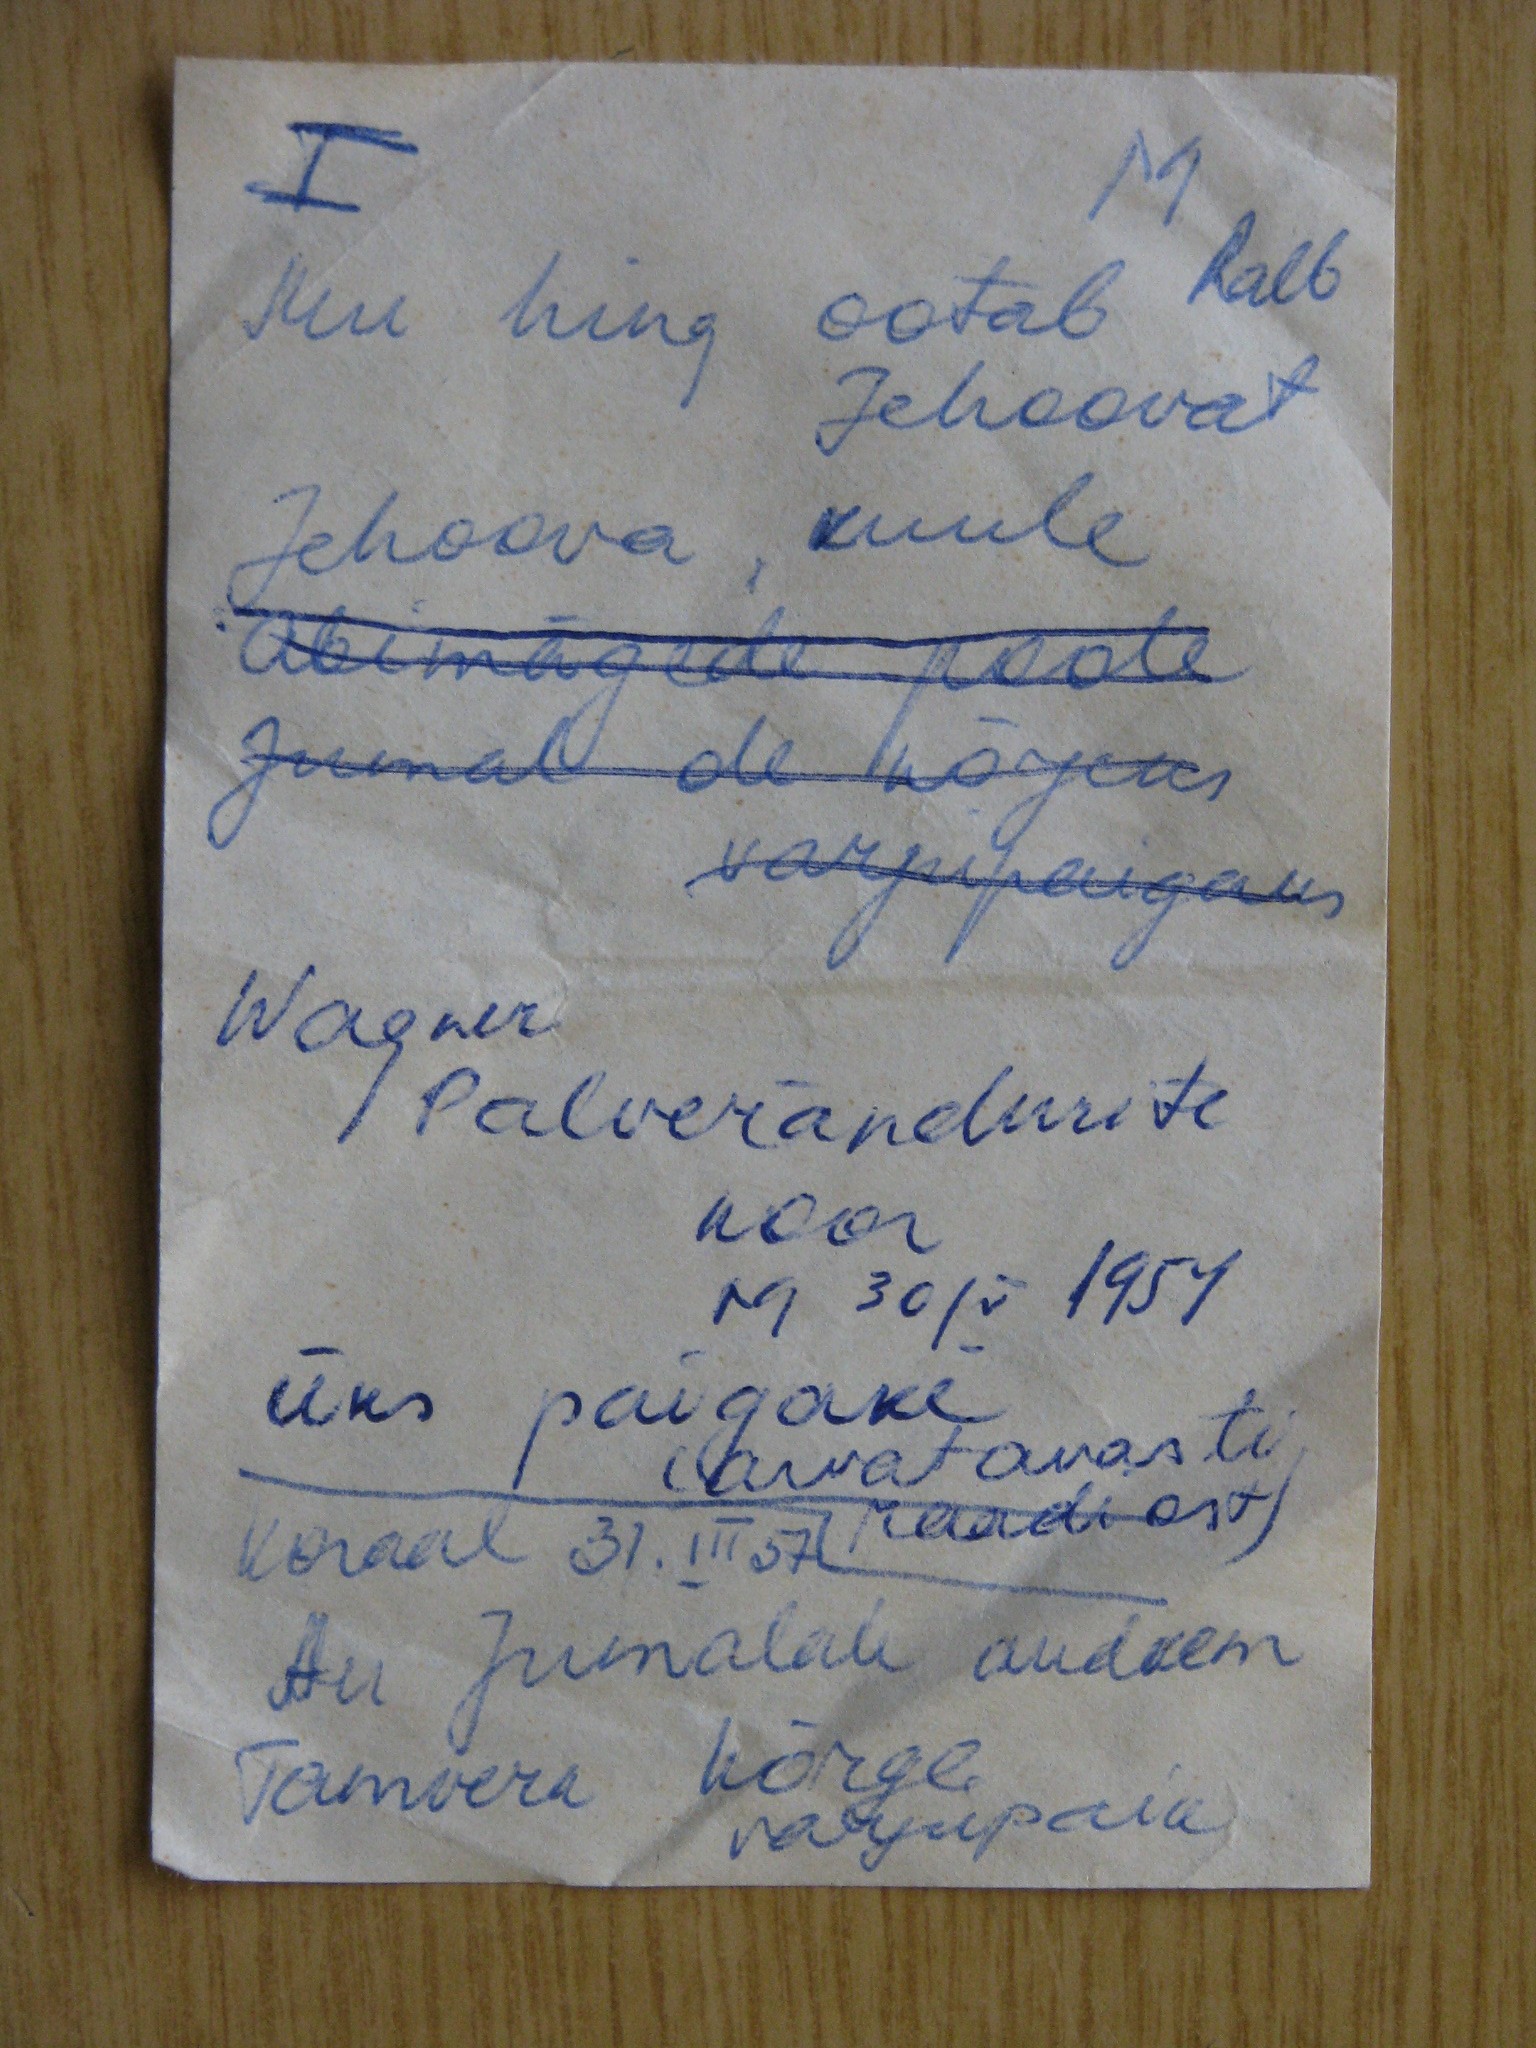 I
M
Mu hing ootab Ralb
Jehoovat
Jehoova, kuule
Abimägede poole
Jumal ole kõrjeks
varjupaigaks
Wagner
Palverändurite
koor
M 30/V 1957
üks paigake
(arvatavasti
raadiost)
Koraal 31. III 57
Au Jumalale andkem
Tamverk Kõrge
varjupaik